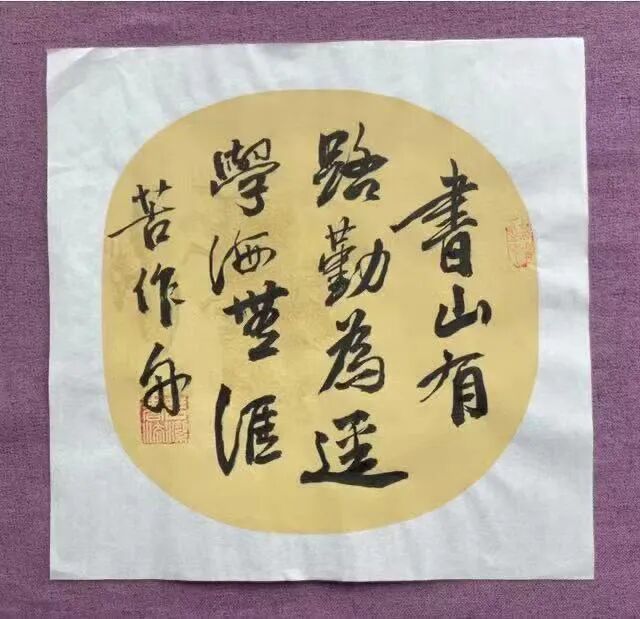 書山有
路勤為逕
學海無涯
苦作舟